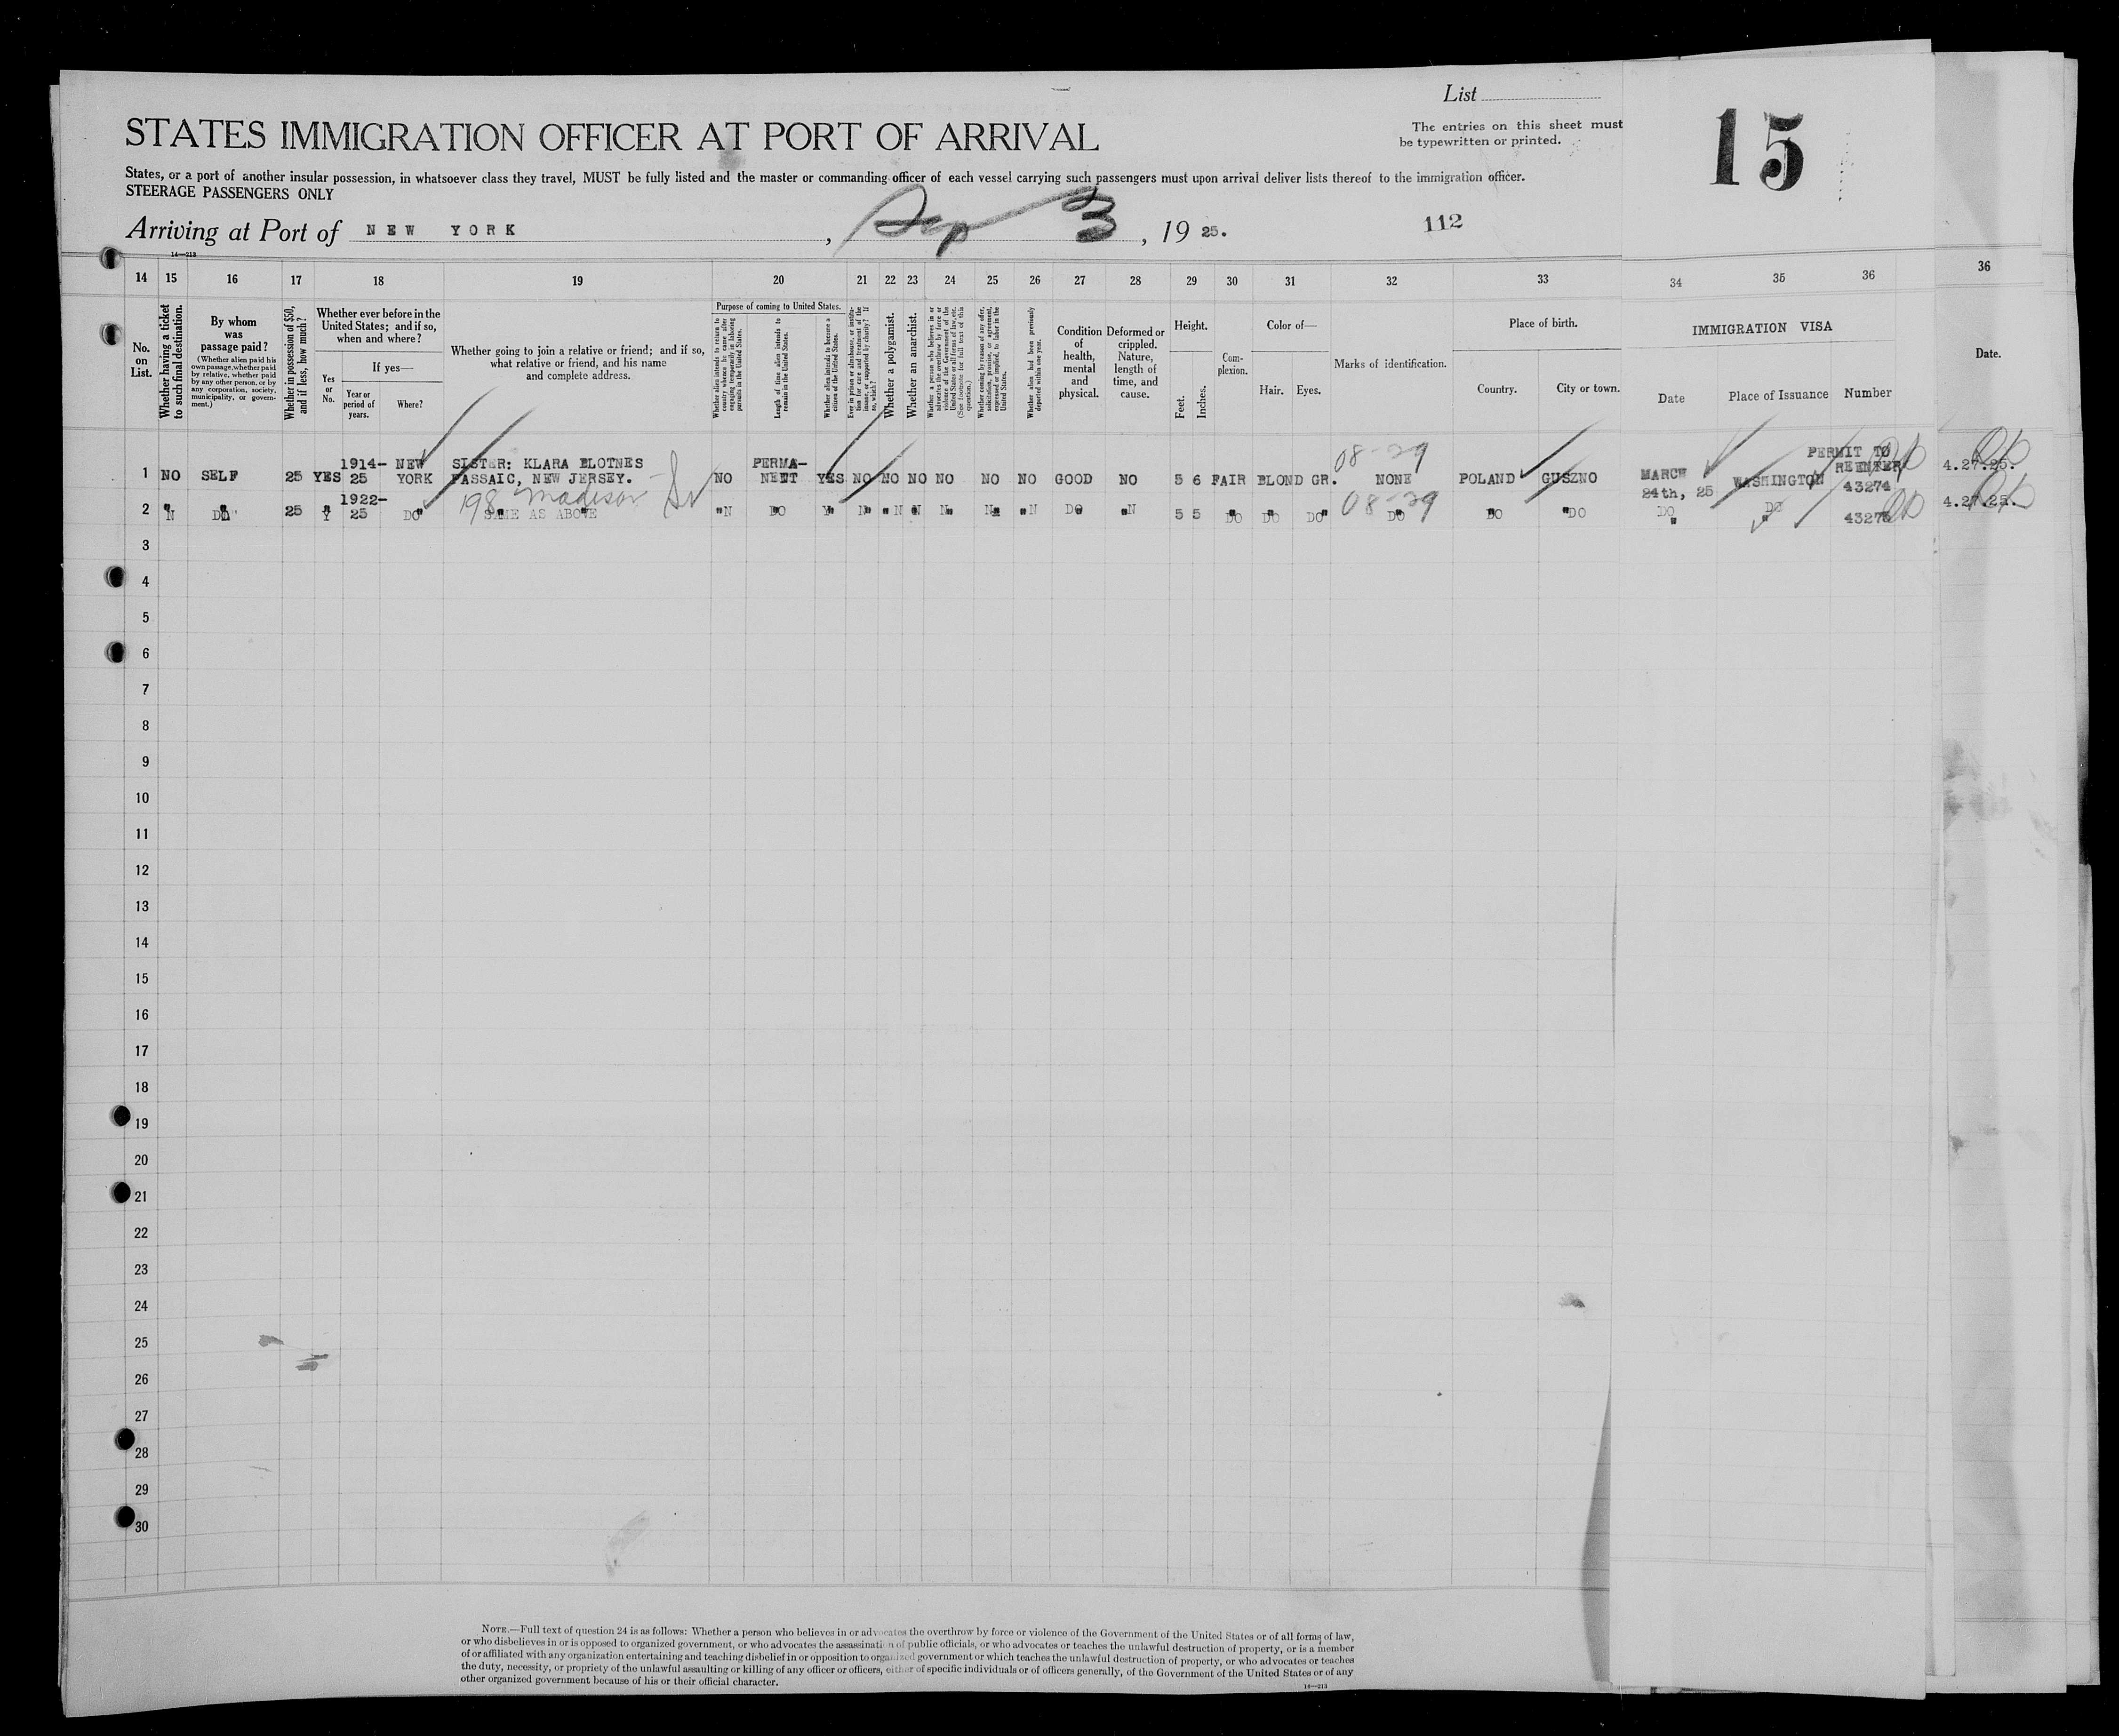 List
STATES IMMIGRATION OFFICER AT PORT OF ARRIVAL
The entries on this sheet must
be typewritten or printed.
15
States, or a port of another insular possession, in whatsoever class they travel, MUST be fully listed and the master or commanding officer of each vessel carrying such passengers must upon arrival deliver lists thereof to the immigration officer.
STEERAGE PASSENGERS ONLY
Arriving at Port of NEW YORK, Sep 3, 19 25.
112
14—213
14 15 16 17 18 19 20 21 22 23 24 25 26 27 28 29 30 31 32 33 34 35 36 36
No. on List.
Whether having a ticket to such final destination.
By whom was passage paid?
(Whether alien paid his own passage, whether paid by relative, whether paid by any other person, or by any corporation, society, municipality, or government.)
Whether in possession of $50, and if less, how much?
Whether ever before in the United States; and if so, when and where?
Yes or No.
If yes—
Year or period of years.
Where?
Whether going to join a relative or friend; and if so, what relative or friend, and his name and complete address.
Purpose of coming to United States.
Whether alien intends to return to country whence he came after engaging temporarily in laboring pursuits in the United States.
Length of time alien intends to remain in the United States.
Whether alien intends to become a citizen of the United States.
Ever in prison or almshouse, or institution for care and treatment of the insane, or supported by charity? If so, which?
Whether a polygamist.
Whether an anarchist.
Whether a person who believes in or advocates the overthrow by force or violence of the Government of the United States or all forms of law, etc. (See footnote for full text of this question.)
Whether coming by reason of any offer, solicitation, promise, or agreement, expressed or implied, to labor in the United States.
Whether alien had been previously deported within one year.
Condition of health, mental and physical.
Deformed or crippled. Nature, length of time, and cause.
Height.
Feet. Inches.
Complexion.
Color of—
Hair. Eyes.
Marks of identification.
Place of birth.
Country. City or town.
IMMIGRATION VISA
Date Place of Issuance Number
Date.
1 NO SELF 25 YES 1914-25 NEW YORK SISTER: KLARA BLOTNES PASSAIC, NEW JERSEY. NO PERMANENT YES NO NO NO NO NO NO GOOD NO 5 6 FAIR BLOND GR. 08-29 NONE POLAND GUSZNO MARCH 24th, 25 WASHINGTON PERMIT TO REENTER 43274 4.27.25.
198 Madison St
2 "N DO" 25 "Y 1922-25 DO" SAME AS ABOVE "N DO Y" N" "N "N N" N" "N DO "N 5 5 DO DO DO" 08-29 DO DO "DO DO DO 4.27.25.
3
4
5
6
7
8
9
10
11
12
13
14
15
16
17
18
19
20
21
22
23
24
25
26
27
28
29
30
NOTE.—Full text of question 24 is as follows: Whether a person who believes in or advocates the overthrow by force or violence of the Government of the United States or of all forms of law,
or who disbelieves in or is opposed to organized government, or who advocates the assassination of public officials, or who advocates or teaches the unlawful destruction of property, or is a member
of or affiliated with any organization entertaining and teaching disbelief in or opposition to organized government or which teaches the unlawful destruction of property, or who advocates or teaches
the duty, necessity, or propriety of the unlawful assaulting or killing of any officer or officers, either of specific individuals or of officers generally, of the Government of the United States or of any
other organized government because of his or their official character.
14—213